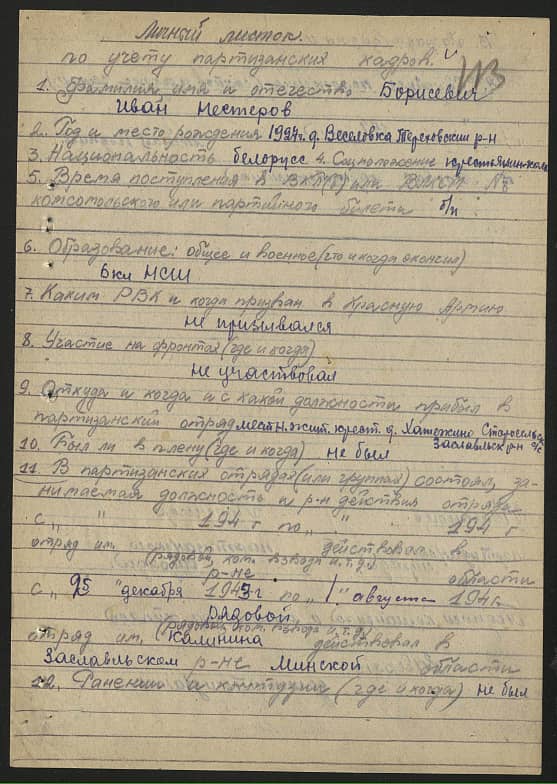 Личный листок.
по учету партизанских кадров.
1. Фамилия имя и отчество Борисевич
Иван Нестеров
2. Год и место рождения 1927г. д. Веселовка Тереховский р-н
3. Национальность белорусс 4. Соцположение
5. Время поступления в ВКП(б) или ВЛКСМ №
комсомольского или партийного билета б/п
6. Образование: общее и военное (что и когда окончил)
6кл НСШ
7. Каким РВК и когда призван в Красную Армию
не призывался
8. Участие на фронтах (где и когда)
не участвовал
9. Откуда и когда и с какой должности прибыл в
партизанский отряд местн. жит. крест. д. Хатежино
10. Был ли в плену (где и когда) не был Заславльск р-н
11. В партизанских отрядах (или группах) состоял, за-
нимаемая должность и р-н действия отряда
с „ " 194 г по „ " 194 г
отряд им. действовал в
(рядовой, ком. взвода и т.д.)
р-не области
с „25 "декабря 1943г по „1" августа 194г.
рядовой
(рядовой, ком. взвода и т.д.)
отряд им. Калинина действовал в
Заславльском р-не Минской области
12. Ранения и контузии (где и когда) не был